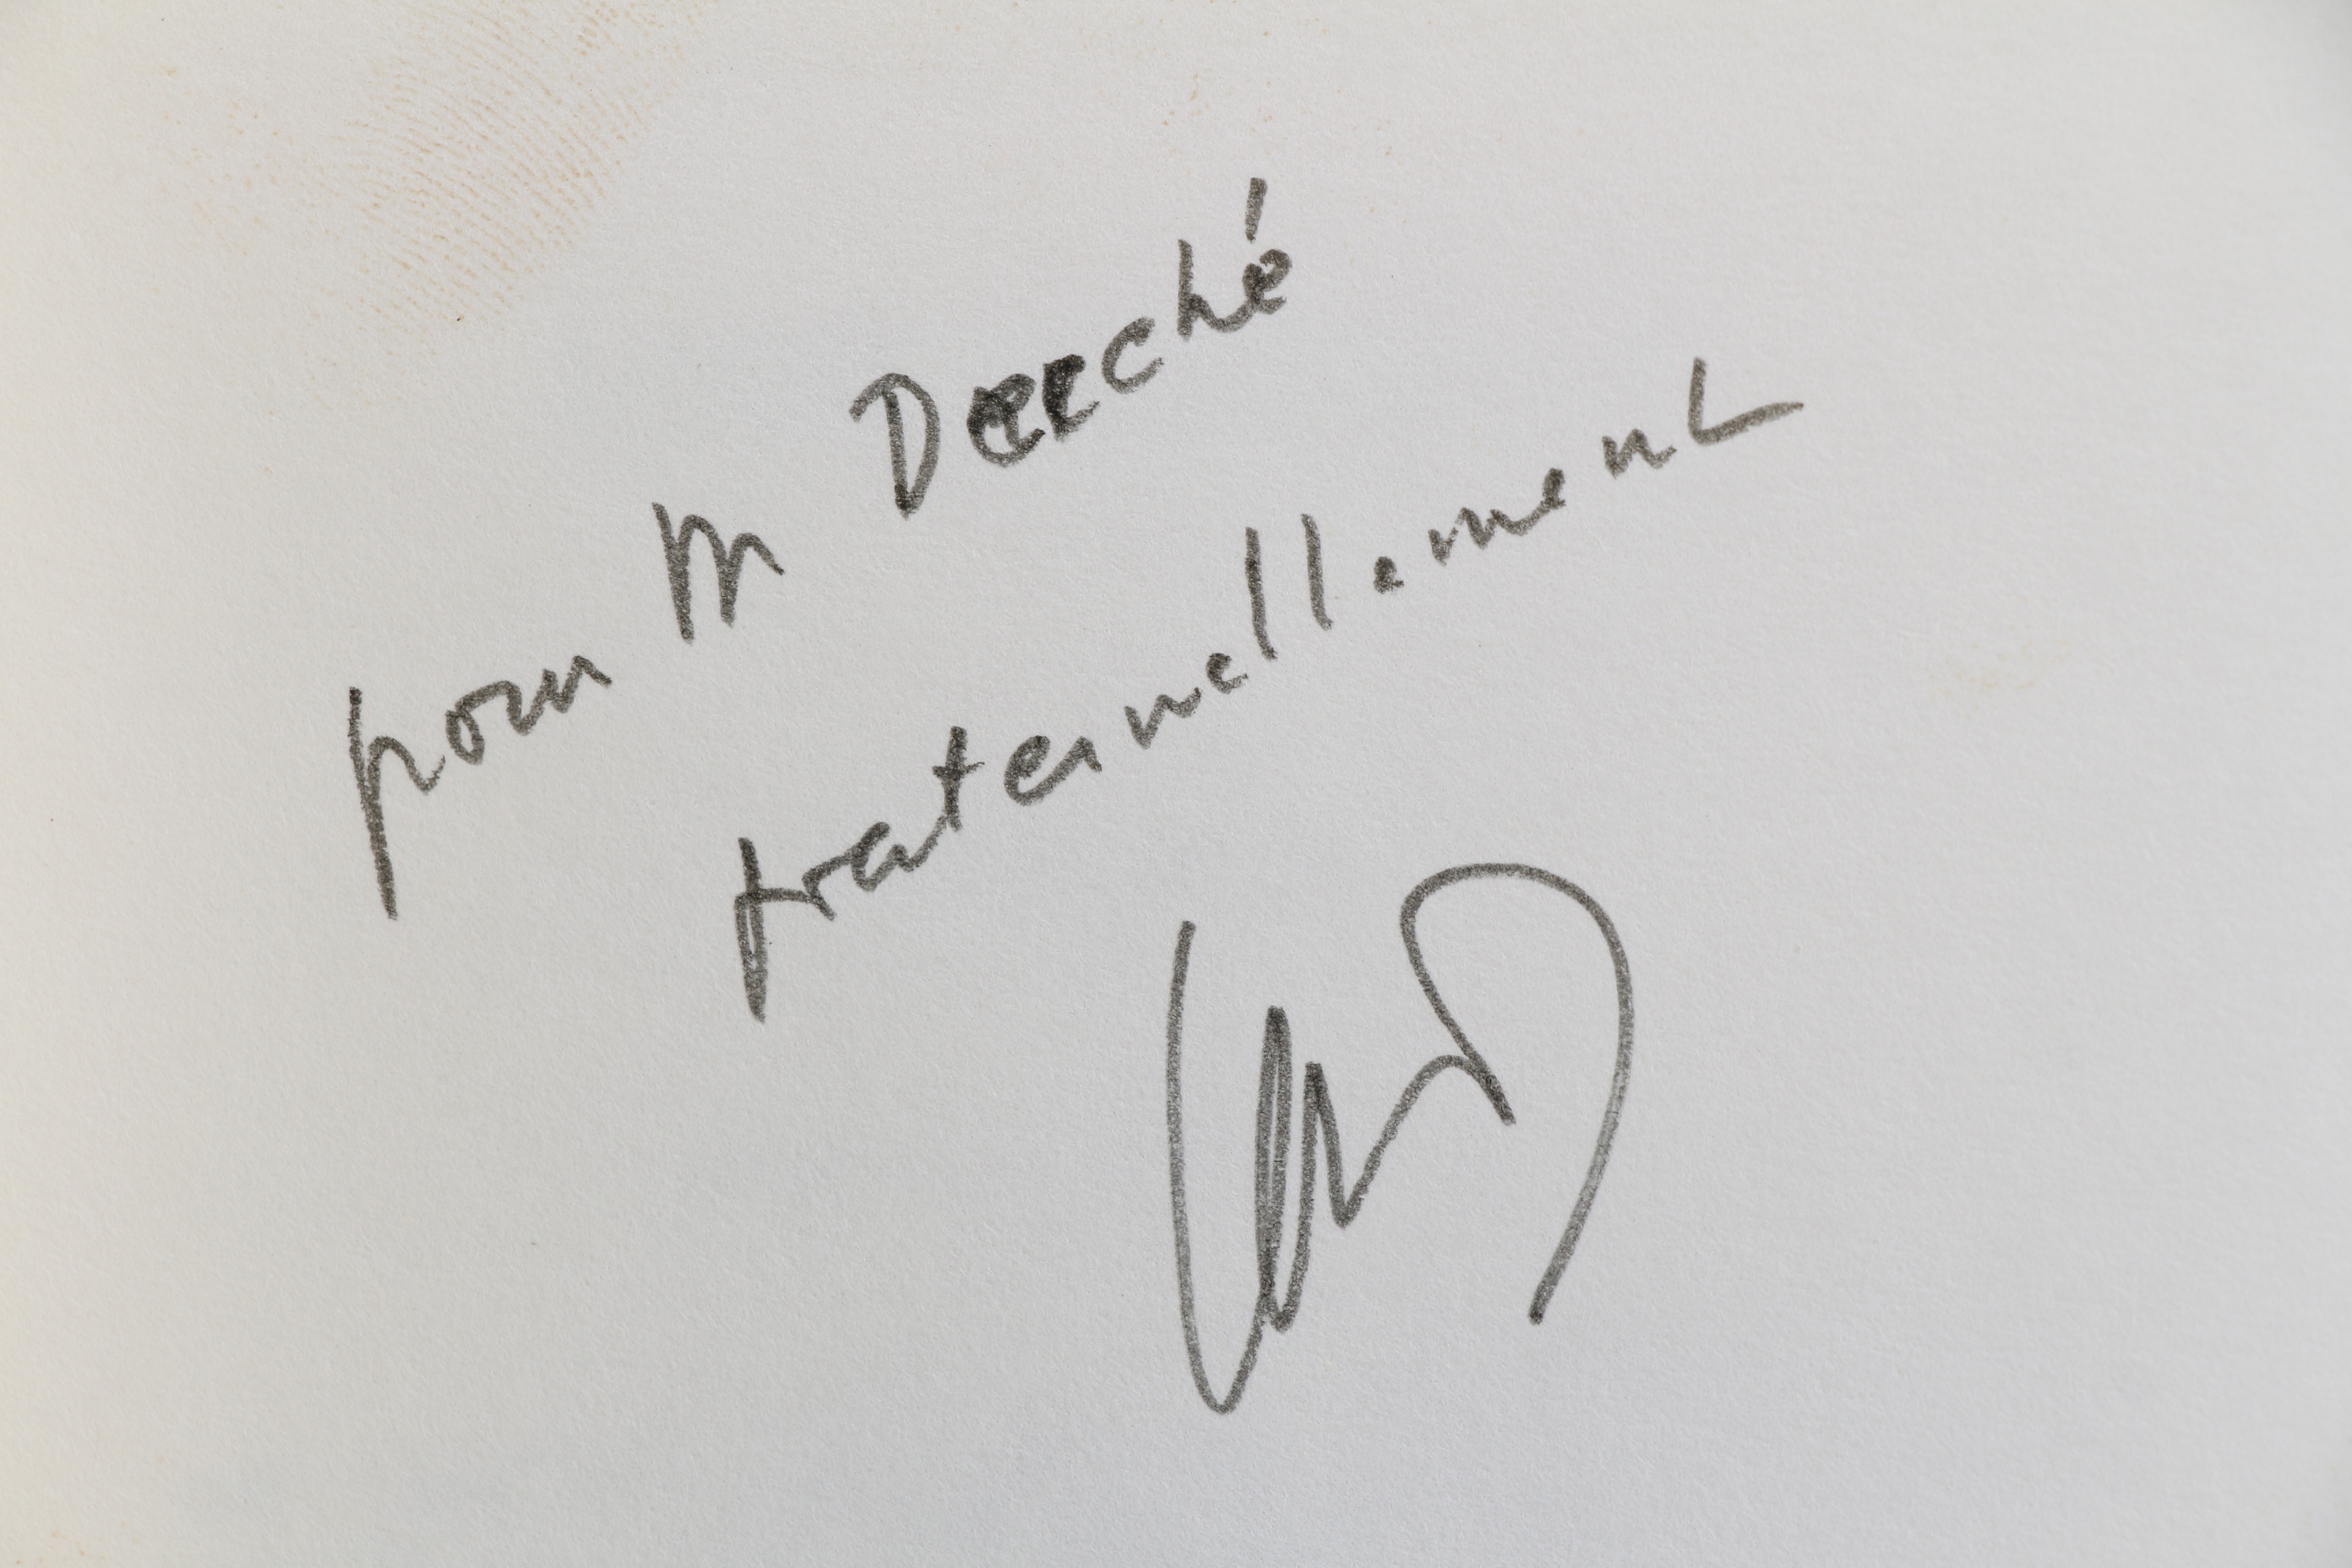 pour M Derché
fraternellement